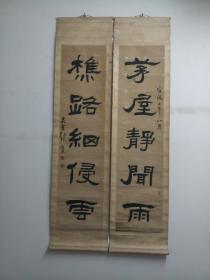 茅屋靜聞雨
樵路細侵雲